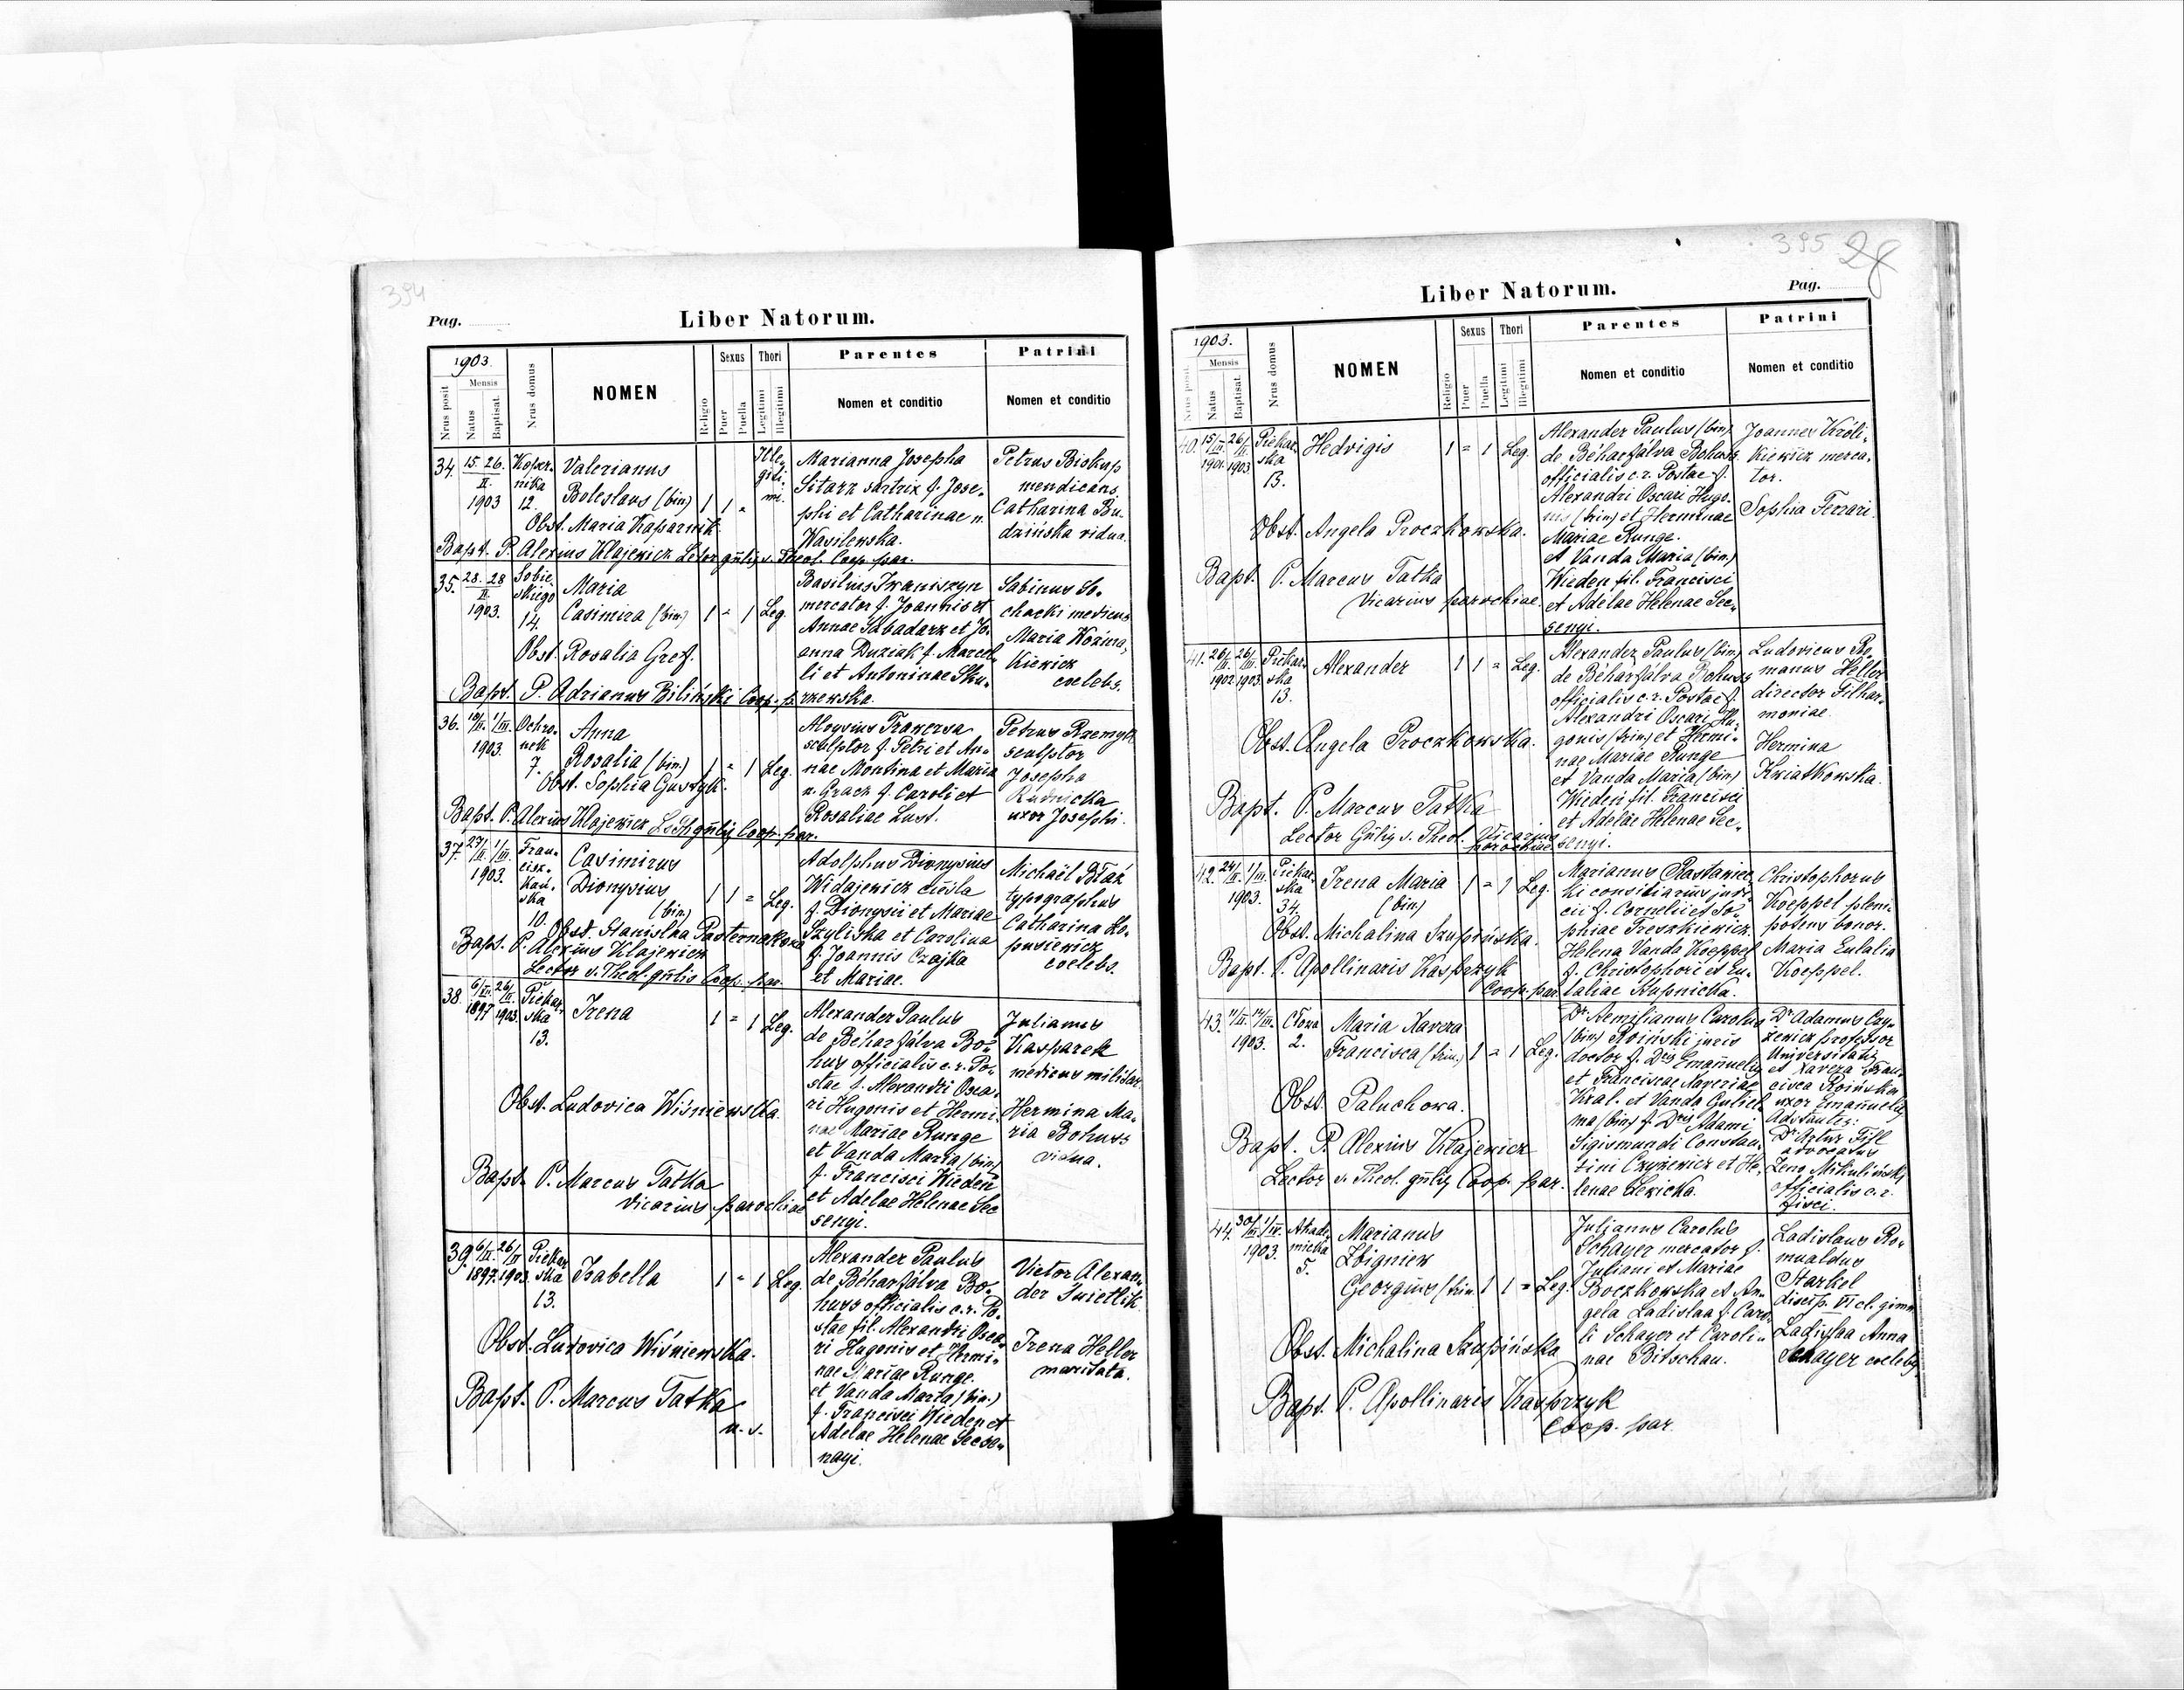 394
Pag.
Liber Natorum.
1903.
Nrus posit
Mensis
Natus
Baptisat.
Nrus domus
NOMEN
Religio
Sexus
Puer
Puella
Thori
Legitimi
Illegitimi
Parentes
Nomen et conditio
Patrini
Nomen et conditio
34. 15. 26. II. 1903
Koper-
nika
12.
Valerianus
Boleslaus (bin)
1 1 "
Ille-
giti-
mi.
Marianna Josepha
Sitarz sartrix f. Jose-
phi et Catharinae n.
Wasilewska.
Petrus Biskup
mendicans
Catharina Bu-
dzińska vidua.
Obst. Maria Kaparnik
Bapt. P. Alexius Klajewicz Lector gūlis s. Theol. Coop. par.
35. 28. 28 II. 1903.
Sobie-
skiego
14.
Maria
Casimira (bin)
1 " 1 Leg.
Basilius Iwaniszyn
mercator f. Joannis et
Annae Sabadarz et Jo-
anna Duziak f. Marcel-
li et Antoninae Sku-
rzewska.
Sabinus So-
chacki medicus
Maria Kozina-
Kiewicz
coelebs.
Obst. Rosalia Gref.
Bapt. P. Adrianus Biliński Coop. p.
36. 10/II. 1/III. 1903
Ochro-
nek
7.
Anna
Rosalia (bin)
1 " 1 Leg.
Aloysius Francersa
sculptor f. Petri et An-
nae Montina et Maria
n. Grach f. Caroli et
Rosaliae Lust.
Petrus Rzemyk
sculptor
Josepha
Rudnicka
uxor Josephi.
Obst. Sophia Gustyk.
Bapt. P. Alexius Klajewicz L. s. Th. gūlis Coop. par.
37. 27/II. 1/III. 1903.
Fran-
cisz-
kań-
ska
10.
Casimirus
Dionysius
(bin)
1 1 " Leg.
Adolphus Dionysius
Widajewicz cieśla
f. Dionysii et Mariae
Szyliska et Carolina
f. Joannis Czajka
et Mariae.
Michaël Błaż
typographus
Catharina Ło-
pusiewicz
coelebs.
Obst. Stanislaa Pasternakowa
Bapt. P. Alexius Klajewicz
Lector s. Theol. gūlis Coop. par.
38. 6/XII. 1897 26/II. 1903.
Piekar-
ska
13.
Irena
1 " 1 Leg.
Alexander Paulus
de Béharfálva Bo-
huss officialis c. r. Po-
stae f. Alexandri Osca-
ri Hugonis et Hermi-
nae Mariae Runge
et Vanda Maria (bin)
f. Francisci Wieden
et Adelae Helenae Sec
senyi.
Julianus
Kasparek
medicus militar.
Hermina Ma-
ria Bohuss
vidua.
Obst. Ludovica Wiśniewska.
Bapt. P. Marcus Tatka
Vicarius parochiae
39. 6/XII. 1897. 26/II 1903.
Piekar
ska
13.
Isabella
1 " 1 Leg.
Alexander Paulus
de Béharfálva Bo-
huss officialis c. r. Po-
stae fil. Alexandri Osca-
ri Hugonis et Hermi-
nae Mariae Runge.
et Vanda Maria (bin.)
f. Francisci Wieden et
Adelae Helenae Secse-
nagi.
Victor Alexan-
der Swietlik
Irena Heller
maritata.
Obst. Ludovica Wiśniewska.
Bapt. P. Marcus Tatka
u. s.
395 28
Liber Natorum.
Pag.
1903.
Nrus posit.
Mensis
Natus
Baptisat.
Nrus domus
NOMEN
Religio
Sexus
Puer
Puella
Thori
Legitimi
Illegitimi
Parentes
Nomen et conditio
Patrini
Nomen et conditio
40. 1901. 26/II 1903
Piekar-
ska
13.
Hedvigis
1 = 1 Leg.
Alexander Paulus (bin)
de Béharfálva Bohuss
officialis c. r. Postae f.
Alexandri Oscari Hugo-
nis (trin) et Herminae
Mariae Runge.
et Vanda Maria (bin)
Wieden fil. Francisci
et Adelae Helenae Sec-
senyi.
Joannes Króli-
kiewicz merca-
tor.
Sophia Ferrari.
Obst. Angela Proczkowska.
Bapt. P. Marcus Tatka
Vicarius parochiae.
41. 1902. 1903.
Piekar-
ska
13.
Alexander
1 1 = Leg.
Alexander Paulus (bin)
de Béharfálva Bohuss
officialis c. r. Postae f.
Alexandri Oscari Hu-
gonis (trin) et Hermi-
nae Mariae Runge
et Vanda Maria (bin)
Wieden fil. Francisci
et Adelae Helenae Sec-
senyi.
Ludovicus Ro-
manus Heller
director Filhar-
moniae.
Hermina
Kwiatkowska.
Obst. Angela Proczkowska.
Bapt. P. Marcus Tatka
Lector Gūlis s. Theol. Vicarius
parochiae
42. 24/II. 1/III. 1903.
Piekar-
ska
34.
Irena Maria
(bin)
1 = 1 Leg.
Marianus Chrastawiec
ki consiliarius judi-
cii f. Cornelii et So-
phiae Freszkiewicz.
Helena Vanda Koeppel
f. Christophori et Eu-
laliae Kupnicka.
Christophorus
Koeppel pleni-
potens bonor.
Maria Eulalia
Koeppel.
Obst. Michalina Szupińska.
Bapt. P. Apollinaris Kasprzyk
Coop. par.
43. 1903.
Cłowa
2.
Maria Xavera
Francisca (trin.)
1 = 1 Leg.
Dr Aemilianus Carolus
(bin) Roiński juris
doctor f. Dris Emanuelis
et Franciscae Xaveriae
Kral. et Vanda Guliel-
ma (bin) f. Dris Adami
Sigismundi Constan-
tini Czyżewicz et He-
lenae Lewicka.
Dr Adamus Czy-
żewicz professor
Universitatis
et Xavera Fran-
cisca Roińska
uxor Emanuelis
Adstantes:
Dr Artur Fijl
advocatus
Zeno Mikuliński
officialis c. r.
fisci.
Obst. Paluchowa.
Bapt. P. Alexius Klajewicz
Lector s. Theol. gūlis Coop. par.
44. 30/III. 1/IV. 1903.
Akade-
micka
5.
Marianus
Zbigniew
Georgius (trin.
1 1 = Leg.
Julianus Carolus
Schayer mercator f.
Juliani et Mariae
Boczkowska et An-
gela Ladislaa f. Caro-
li Schayer et Caroli-
nae Bitschau.
Ladislaus Ro-
mualdus
Starkel
discip. VI cl. gimn
Ladislaa Anna
Schayer coelebs
Obst. Michalina Szupińska
Bapt. P. Apollinaris Kasprzyk
Coop. par.